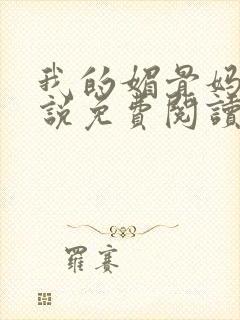 我的媚骨妈
說免費閱讀
羅赛